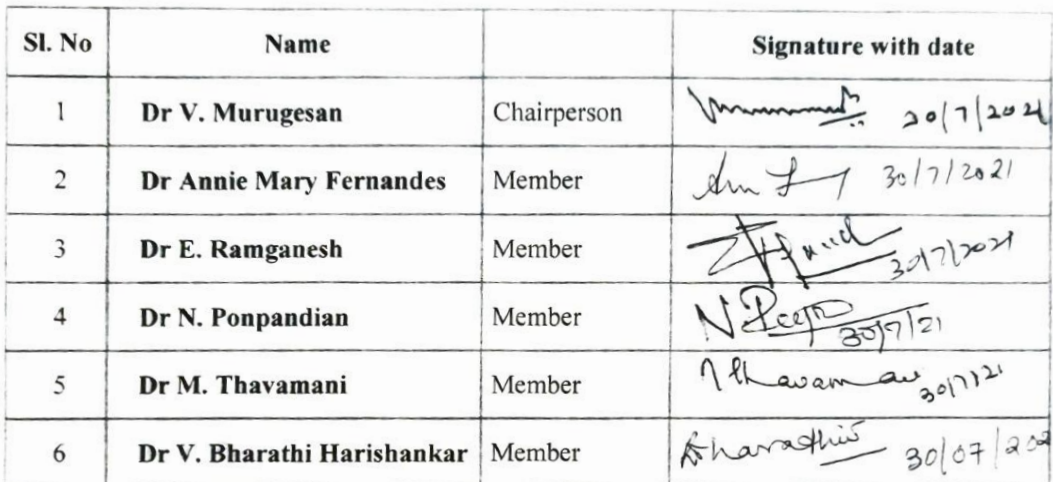 Sl. No Name Signature with date
1 Dr V. Murugesan Chairperson 20/7/2021
2 Dr Annie Mary Fernandes Member 30/7/2021
3 Dr E. Ramganesh Member 30/7/2021
4 Dr N. Ponpandian Member 30/7/21
5 Dr M. Thavamani Member Thavamani 30/7/21
6 Dr V. Bharathi Harishankar Member Bharathi 30/07/202